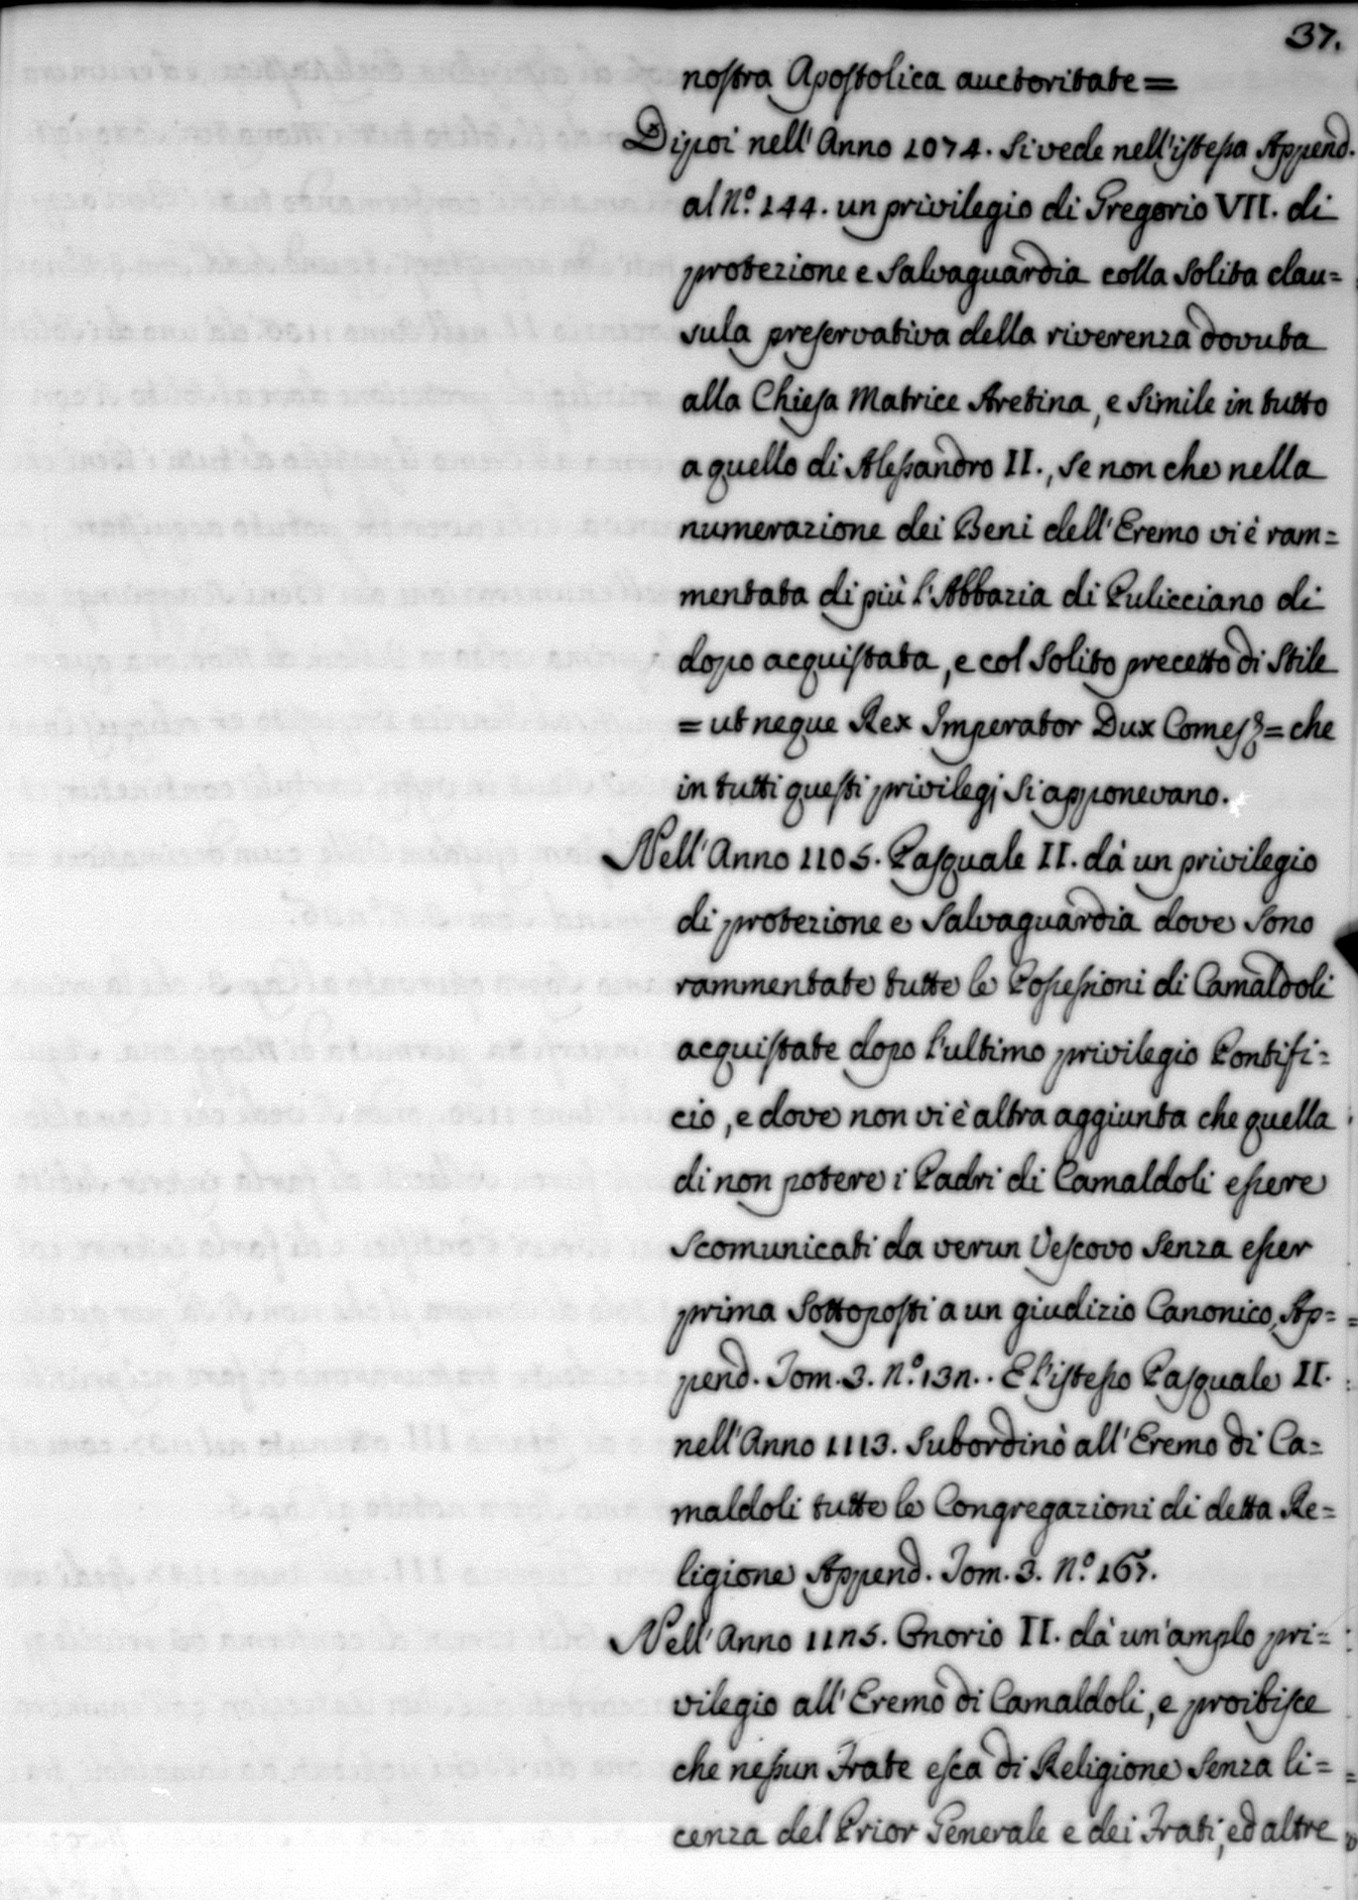 37.
nostra Apostolica auctoritate =
Dipoi nell'Anno 1074. si vede nell'istessa Append.
al N.º 144. un privilegio di Gregorio VII. di
protezione e salvaguardia colla solita clau=
sula preservativa della riverenza dovuta
alla Chiesa Matrice Aretina, e simile in tutto
a quello di Alessandro II., se non che nella
numerazione dei Beni dell'Eremo vi è ram=
mentata di più l'Abbazia di Pulicciano di
dopo acquistata, e col solito precetto di stile
= ut neque Rex Imperator Dux Comes &= che
in tutti questi privilegj si apponevano.
Nell'Anno 1105. Pasquale II. dà un privilegio
di protezione e salvaguardia dove sono
rammentate tutte le Possessioni di Camaldoli
acquistate dopo l'ultimo privilegio Pontifi=
cio, e dove non vi è altra aggiunta che quella
di non potere i Padri di Camaldoli essere
scomunicati da verun Vescovo senza esser
prima sottoposti a un giudizio Canonico, Ap=
pend. Tom. 3. N.º 132.. E l'istesso Pasquale II.
nell'Anno 1113. subordinò all'Eremo di Ca=
maldoli tutte le Congregazioni di detta Re=
ligione Append. Tom. 3. N.º 165.
Nell'Anno 1125. Onorio II. dà un'amplo pri=
vilegio all'Eremo di Camaldoli, e proibisce
che nessun Frate esca di Religione senza li=
cenza del Prior Generale e dei Frati, ed altre